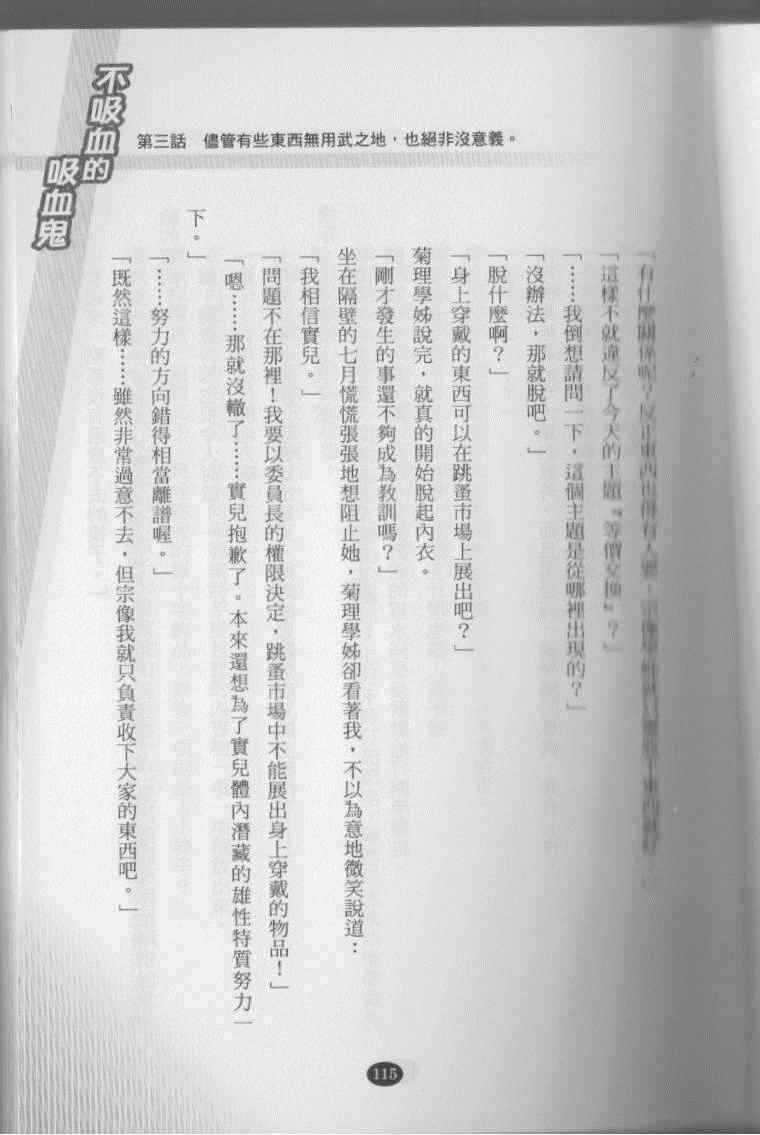 不吸血的
吸血鬼
第三話　儘管有些東西無用武之地，也絕非沒意義。
「有什麼關係呢？反正東西也得有人要
「這樣不就違反了今天的主題『等價交換』？」
「……我倒想請問一下，這個主題是從哪裡出現的？」
「沒辦法，那就脫吧。」
「脫什麼啊？」
「身上穿戴的東西可以在跳蚤市場上展出吧？」
菊理學姊說完，就真的開始脫起內衣。
「剛才發生的事還不夠成為教訓嗎？」
坐在隔壁的七月慌慌張張地想阻止她，菊理學姊卻看著我，不以為意地微笑說道：
「我相信實兒。」
「問題不在那裡！我要以委員長的權限決定，跳蚤市場中不能展出身上穿戴的物品！」
「嗯……那就沒轍了……實兒抱歉了。本來還想為了實兒體內潛藏的雄性特質努力一
下。」
「……努力的方向錯得相當離譜喔。」
「既然這樣……雖然非常過意不去，但宗像我就只負責收下大家的東西吧。」
115